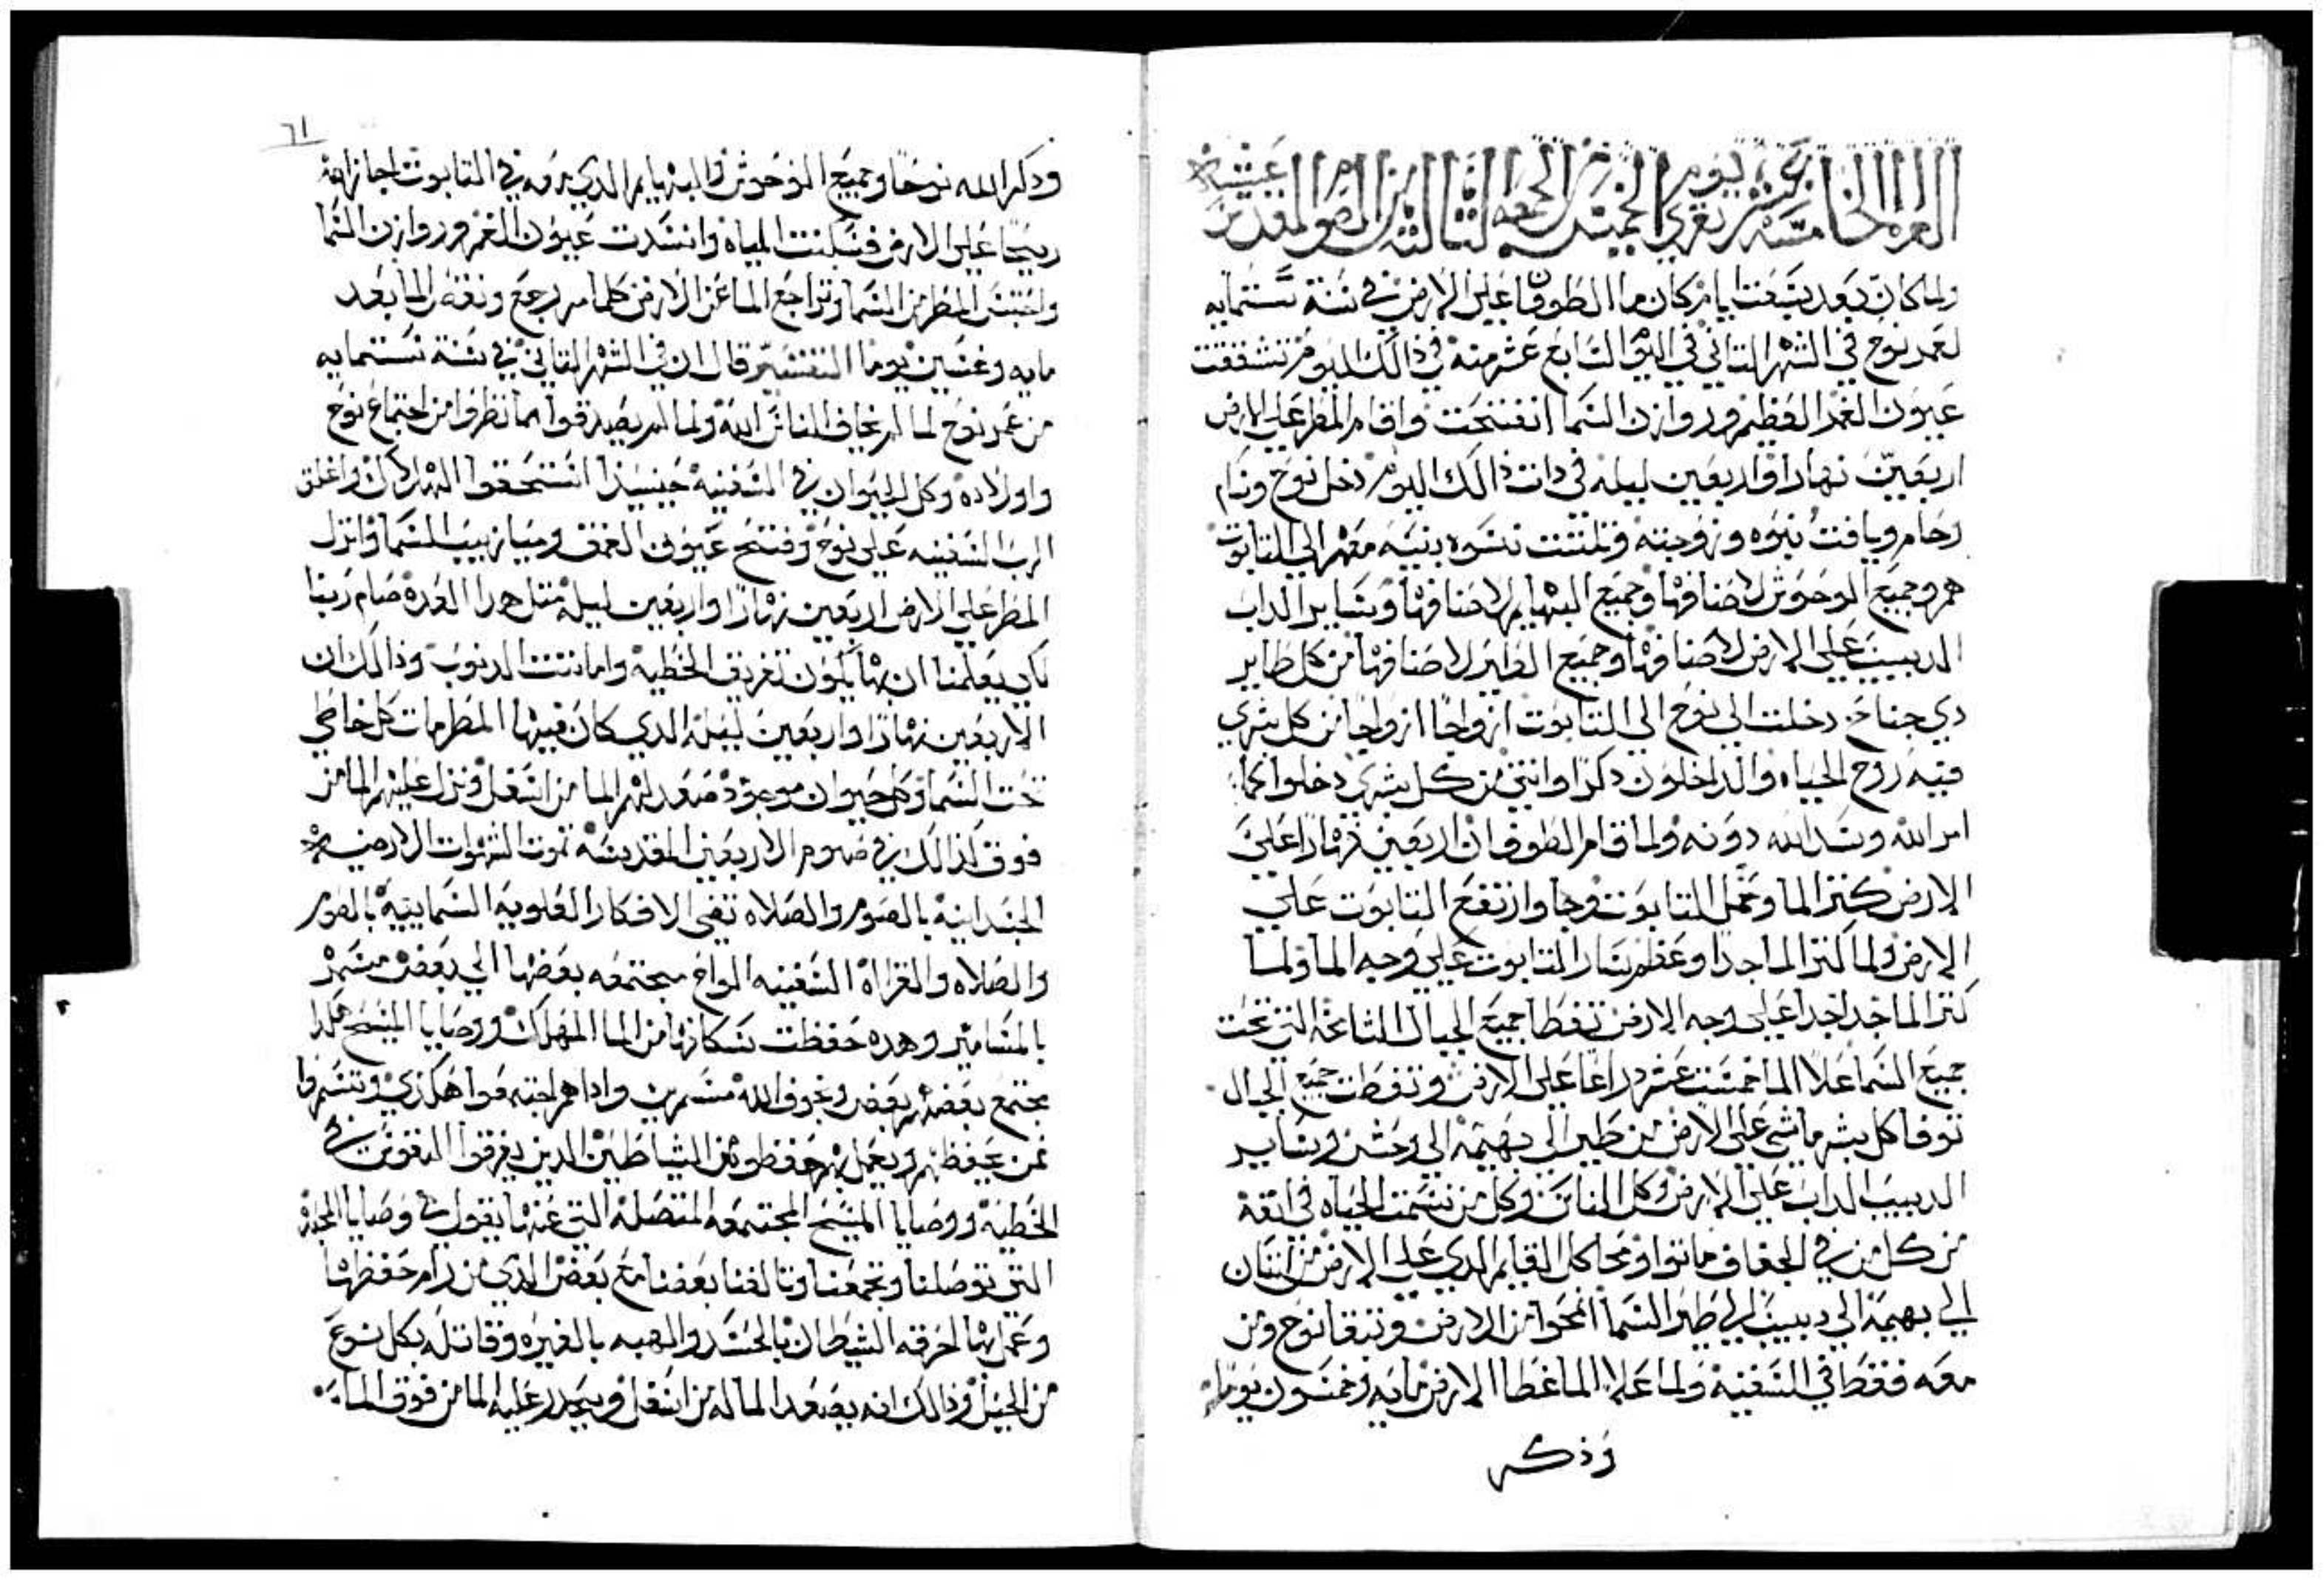 القراه الخامسة عشر يوم الخميس من الجمعه الثالثه من الصوم المقدس عشيه
تقري
ولما كان بعد سبعت ايام كان ما الطوفان علي الارض في سنة ستمايه
لعمر نوح في الشهر التاني في اليوم السابع عشر منه في ذالك اليوم تشققت
عيون الغمر العظيم وروازن السما انفتحت واقام المطر علي الارض
اربعين نهارا واربعين ليله في دات ذالك اليوم دخل نوح وسام
وحام ويافت بنوه وزوجته وتلتت نسوه بنيه معهم الي التابوت
هم وجميع الوحوش لاصنافها وجميع البهايم لاصنافها وساير الداب
الدبيب علي الارض لاصنافها وجميع الطير لاصنافها من كل طاير
دي جناح دخلت الي نوح الي التابوت ازواجا ازواجا من كل شي
فيه روح الحياه والداخلون دكرا وانتي من كل بشري دخلوا كما
امر الله وسد الله دونه ولما قام الطوفان اربعين نهارا علي
الارض كتر الما وحمل التابوت وجا وارتفع التابوت علي
الارض ولما كتر الما جدا وعظم سار التابوت علي وجه الما ولما
كتر الما جدا جدا علي وجه الارض تغطا جميع الجبال الشامخه التي تحت
جميع السما علا الما خمست عشر دراعا علي الارض وتغطت جميع الجبال
توفا كل بشر ماشي علي الارض من طير الي بهيمة الي وحش وساير
الدبيب الداب علي الارض وكل الناس وكل من نسمت الحياه في انفه
من كل من في الجفاف ماتوا ومحا كل القايم الدي علي الارض من انسان
الي بهيمة الي دبيب الي طير السما انمحوا من الارض وتبقا نوح ومن
معه فقط في السفينة ولما علا الما غطا الارض مايه وخمسون يوما
وذكر
٦١
ودكر الله نوحا وجميع الوحوش والبهايم الدي معه في التابوت اجاز الله
ريحا علي الارض فسكنت المياه وانسدت عيون الغمر وروازن السما
واحتبس المطر من السما وتراجع الما عن الارض كلما مر رجع ونقص الما بعد
مايه وخمسين يوما التفسير قال ان في الشهر التاني في سنة ستمايه
من عمر نوح لما لم يخاف الناس الله ولما لم يصدقوا بما نظروا من اجتماع نوح
واولاده وكل الحيوان في السفينه حينيذا استحقوا الهلاك واغلق
الرب السفينه علي نوح وفتح عيون العمق وميازيب السما وانزل
المطر علي الارض اربعين نهارا واربعين ليله متل هدا العدد صام ربنا
لكي يعلمنا ان بها يكون تغريق الخطيه واماتت الدنوب وذالك ان
الاربعين نهارا واربعين ليله الدي كان فيها المطر مات كل خاطي
تحت السما وكل حيوان موجود صعد لهم الما من اسفل ونزل عليهم الما من
فوق كذالك في صوم الاربعين المقدسه تموت الشهوات الارضيه
الجسدانيه بالصوم والصلاه تفى الافكار العلويه السماييه بالصوم
والصلاه والقراه السفينه الواح مجتمعه بعضها الي بعض مسمر
بالمسامير وهده حفظت سكانها من الما المهلك ووصايا المسيح هكدا
تجتمع بعضهم بعض وبخوف الله مسمرين واداهم اجتمعوا هكذي وتسمروا
فمن يحفظهم ويعمل بهم حفظوه من الشياطين الدين يغرقوا النفوس في
الخطية ووصايا المسيح المجتمعه المتصلة التي عنها يقول في وصايا المحبة
التي توصلنا وتجمعنا وتالفنا بعضنا مع بعض الدي من رام حفظها
وعمل بها احرقه الشيطان بالحسد والهبه بالغيره وقاتله بكل نوع
من الحيل وذالك انه يصعد الما له من اسفل ويحدر عليه الما من فوق الما